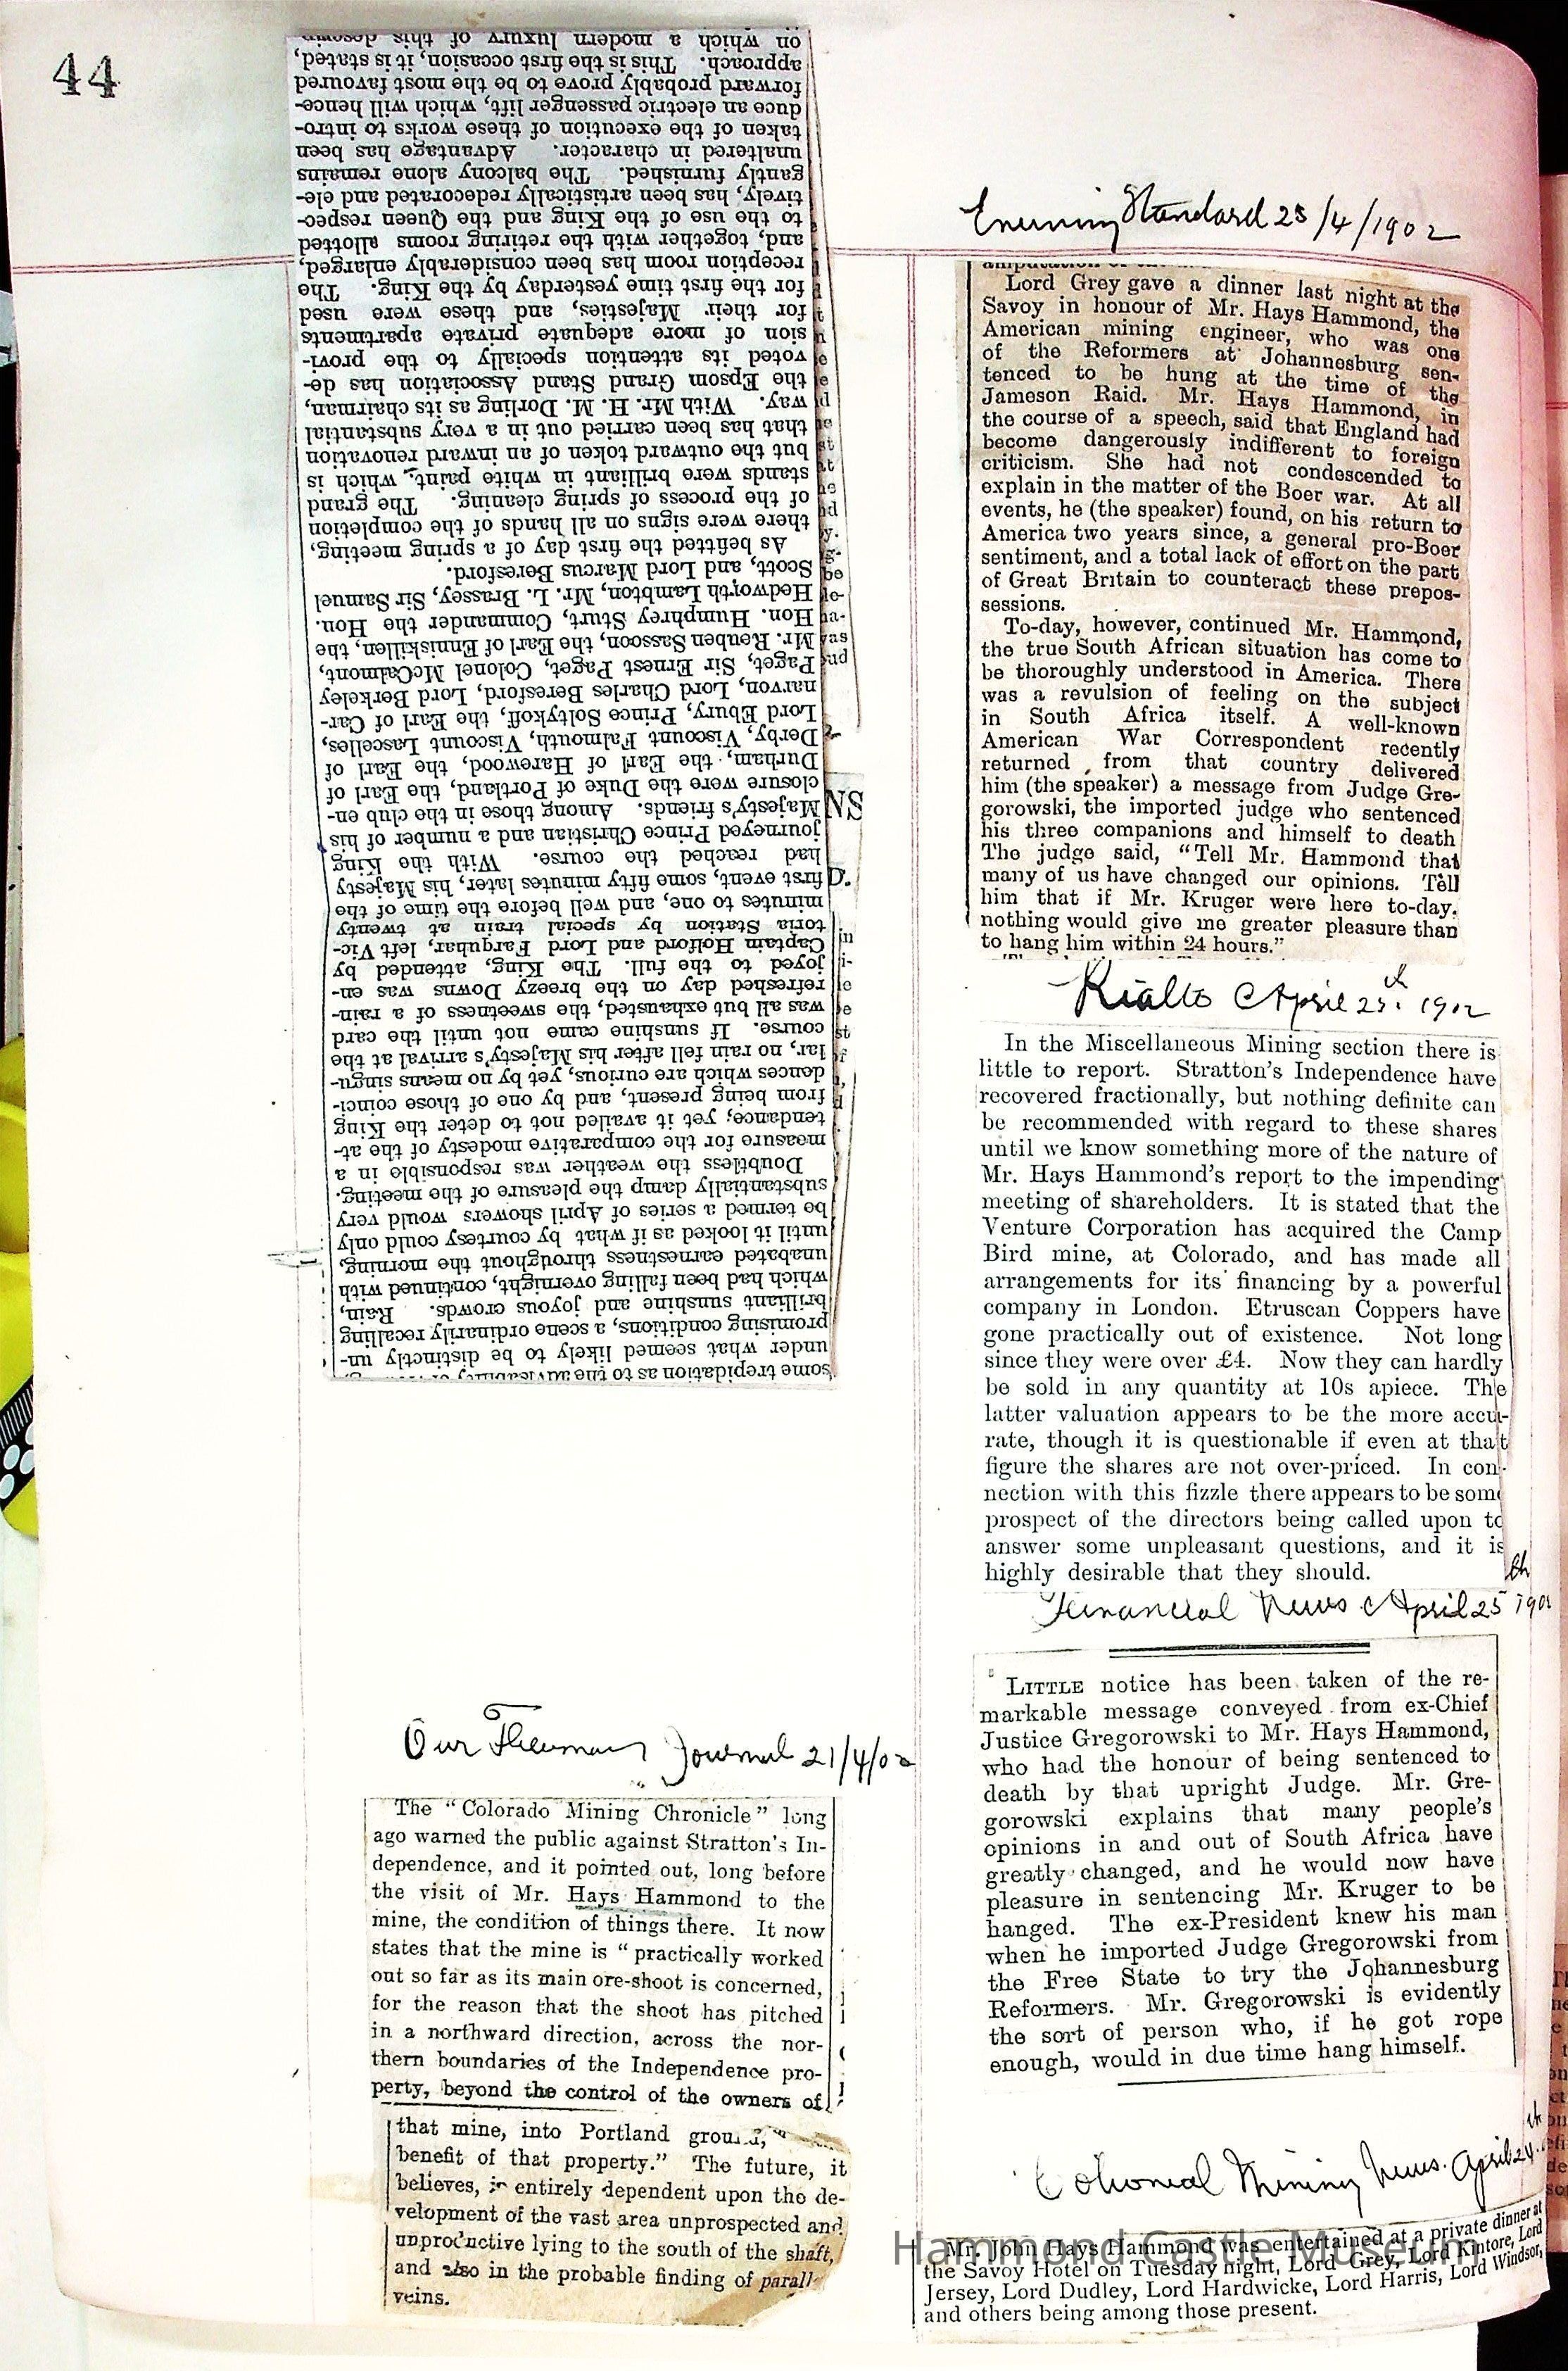 44
some trepidation as to the
under what seemed likely to be distinctly un-
promising conditions, a scene ordinarily recalling
brilliant sunshine and joyous crowds. Rain,
which had been falling overnight, continued with
unabated earnestness throughout the morning,
until it looked as if what by courtesy could only
be termed a series of April showers would very
substantially damp the pleasure of the meeting.
Doubtless the weather was responsible in a
measure for the comparative modesty of the at-
tendance; yet it availed not to deter the King
from being present, and by one of those coinci-
dences which are curious, yet by no means singu-
lar, no rain fell after his Majesty's arrival at the
course. If sunshine came not until the card
was all but exhausted, the sweetness of a rain-
refreshed day on the breezy Downs was en-
joyed to the full. The King, attended by
Captain Holford and Lord Farquhar, left Vic-
toria Station by special train at twenty
minutes to one, and well before the time of the
first event, some fifty minutes later, his Majesty
had reached the course. With the King
journeyed Prince Christian and a number of his
Majesty's friends. Among those in the club en-
closure were the Duke of Portland, the Earl of
Durham, the Earl of Harewood, the Earl of
Derby, Viscount Falmouth, Viscount Lascelles,
Lord Ebury, Prince Soltykoff, the Earl of Car-
narvon, Lord Charles Beresford, Lord Berkeley
Paget, Sir Ernest Paget, Colonel McCalmont,
Mr. Reuben Sassoon, the Earl of Enniskillen, the
Hon. Humphrey Sturt, Commander the Hon.
Hedworth Lambton, Mr. L. Brassey, Sir Samuel
Scott, and Lord Marcus Beresford.
As befitted the first day of a spring meeting,
there were signs on all hands of the completion
of the process of spring cleaning. The grand
stands were brilliant in white paint, which is
but the outward token of an inward renovation
that has been carried out in a very substantial
way. With Mr. H. M. Dorling as its chairman,
the Epsom Grand Stand Association has de-
voted its attention specially to the provi-
sion of more adequate private apartments
for their Majesties, and these were used
for the first time yesterday by the King. The
reception room has been considerably enlarged,
and, together with the retiring rooms allotted
to the use of the King and the Queen respec-
tively, has been artistically redecorated and ele-
gantly furnished. The balcony alone remains
unaltered in character. Advantage has been
taken of the execution of these works to intro-
duce an electric passenger lift, which will hence-
forward probably prove to be the most favoured
approach. This is the first occasion, it is stated,
on which a modern luxury of this
Our Journal 21/4/02
The "Colorado Mining Chronicle" long
ago warned the public against Stratton's In-
dependence, and it pointed out, long before
the visit of Mr. Hays Hammond to the
mine, the condition of things there. It now
states that the mine is "practically worked
out so far as its main ore-shoot is concerned,
for the reason that the shoot has pitched
in a northward direction, across the nor-
thern boundaries of the Independence pro-
perty, beyond the control of the owners of
that mine, into Portland
benefit of that property." The future, it
believes, is entirely dependent upon the de-
velopment of the vast area unprospected and
unproductive lying to the south of the shaft,
and also in the probable finding of
veins.
Evening Standard 23/4/1902
Lord Grey gave a dinner last night at the
Savoy in honour of Mr. Hays Hammond, the
American mining engineer, who was one
of the Reformers at Johannesburg sen-
tenced to be hung at the time of the
Jameson Raid. Mr. Hays Hammond, in
the course of a speech, said that England had
become dangerously indifferent to foreign
criticism. She had not condescended to
explain in the matter of the Boer war. At all
events, he (the speaker) found, on his return to
America two years since, a general pro-Boer
sentiment, and a total lack of effort on the part
of Great Britain to counteract these prepos-
sessions.
To-day, however, continued Mr. Hammond,
the true South African situation has come to
be thoroughly understood in America. There
was a revulsion of feeling on the subject
in South Africa itself. A well-known
American War Correspondent recently
returned from that country delivered
him (the speaker) a message from Judge Gre-
gorowski, the imported judge who sentenced
his three companions and himself to death
The judge said, "Tell Mr. Hammond that
many of us have changed our opinions. Tell
him that if Mr. Kruger were here to-day,
nothing would give me greater pleasure than
to hang him within 24 hours."
Rialto April 23th 1902
In the Miscellaneous Mining section there is
little to report. Stratton's Independence have
recovered fractionally, but nothing definite can
be recommended with regard to these shares
until we know something more of the nature of
Mr. Hays Hammond's report to the impending
meeting of shareholders. It is stated that the
Venture Corporation has acquired the Camp
Bird mine, at Colorado, and has made all
arrangements for its financing by a powerful
company in London. Etruscan Coppers have
gone practically out of existence. Not long
since they were over £4. Now they can hardly
be sold in any quantity at 10s apiece. The
latter valuation appears to be the more accu-
rate, though it is questionable if even at that
figure the shares are not over-priced. In con-
nection with this fizzle there appears to be some
prospect of the directors being called upon to
answer some unpleasant questions, and it is
highly desirable that they should.
Financial News April 25th 1902
LITTLE notice has been taken of the re-
markable message conveyed from ex-Chief
Justice Gregorowski to Mr. Hays Hammond,
who had the honour of being sentenced to
death by that upright Judge. Mr. Gre-
gorowski explains that many people's
opinions in and out of South Africa have
greatly changed, and he would now have
pleasure in sentencing Mr. Kruger to be
hanged. The ex-President knew his man
when he imported Judge Gregorowski from
the Free State to try the Johannesburg
Reformers. Mr. Gregorowski is evidently
the sort of person who, if he got rope
enough, would in due time hang himself.
Colonial Mining News. April 24th
Mr. John Hays Hammond was entertained at a private dinner at
the Savoy Hotel on Tuesday night, Lord Grey, Lord Kintore, Lord
Jersey, Lord Dudley, Lord Hardwicke, Lord Harris, Lord Windsor,
and others being among those present.
Hammond Castle Museum